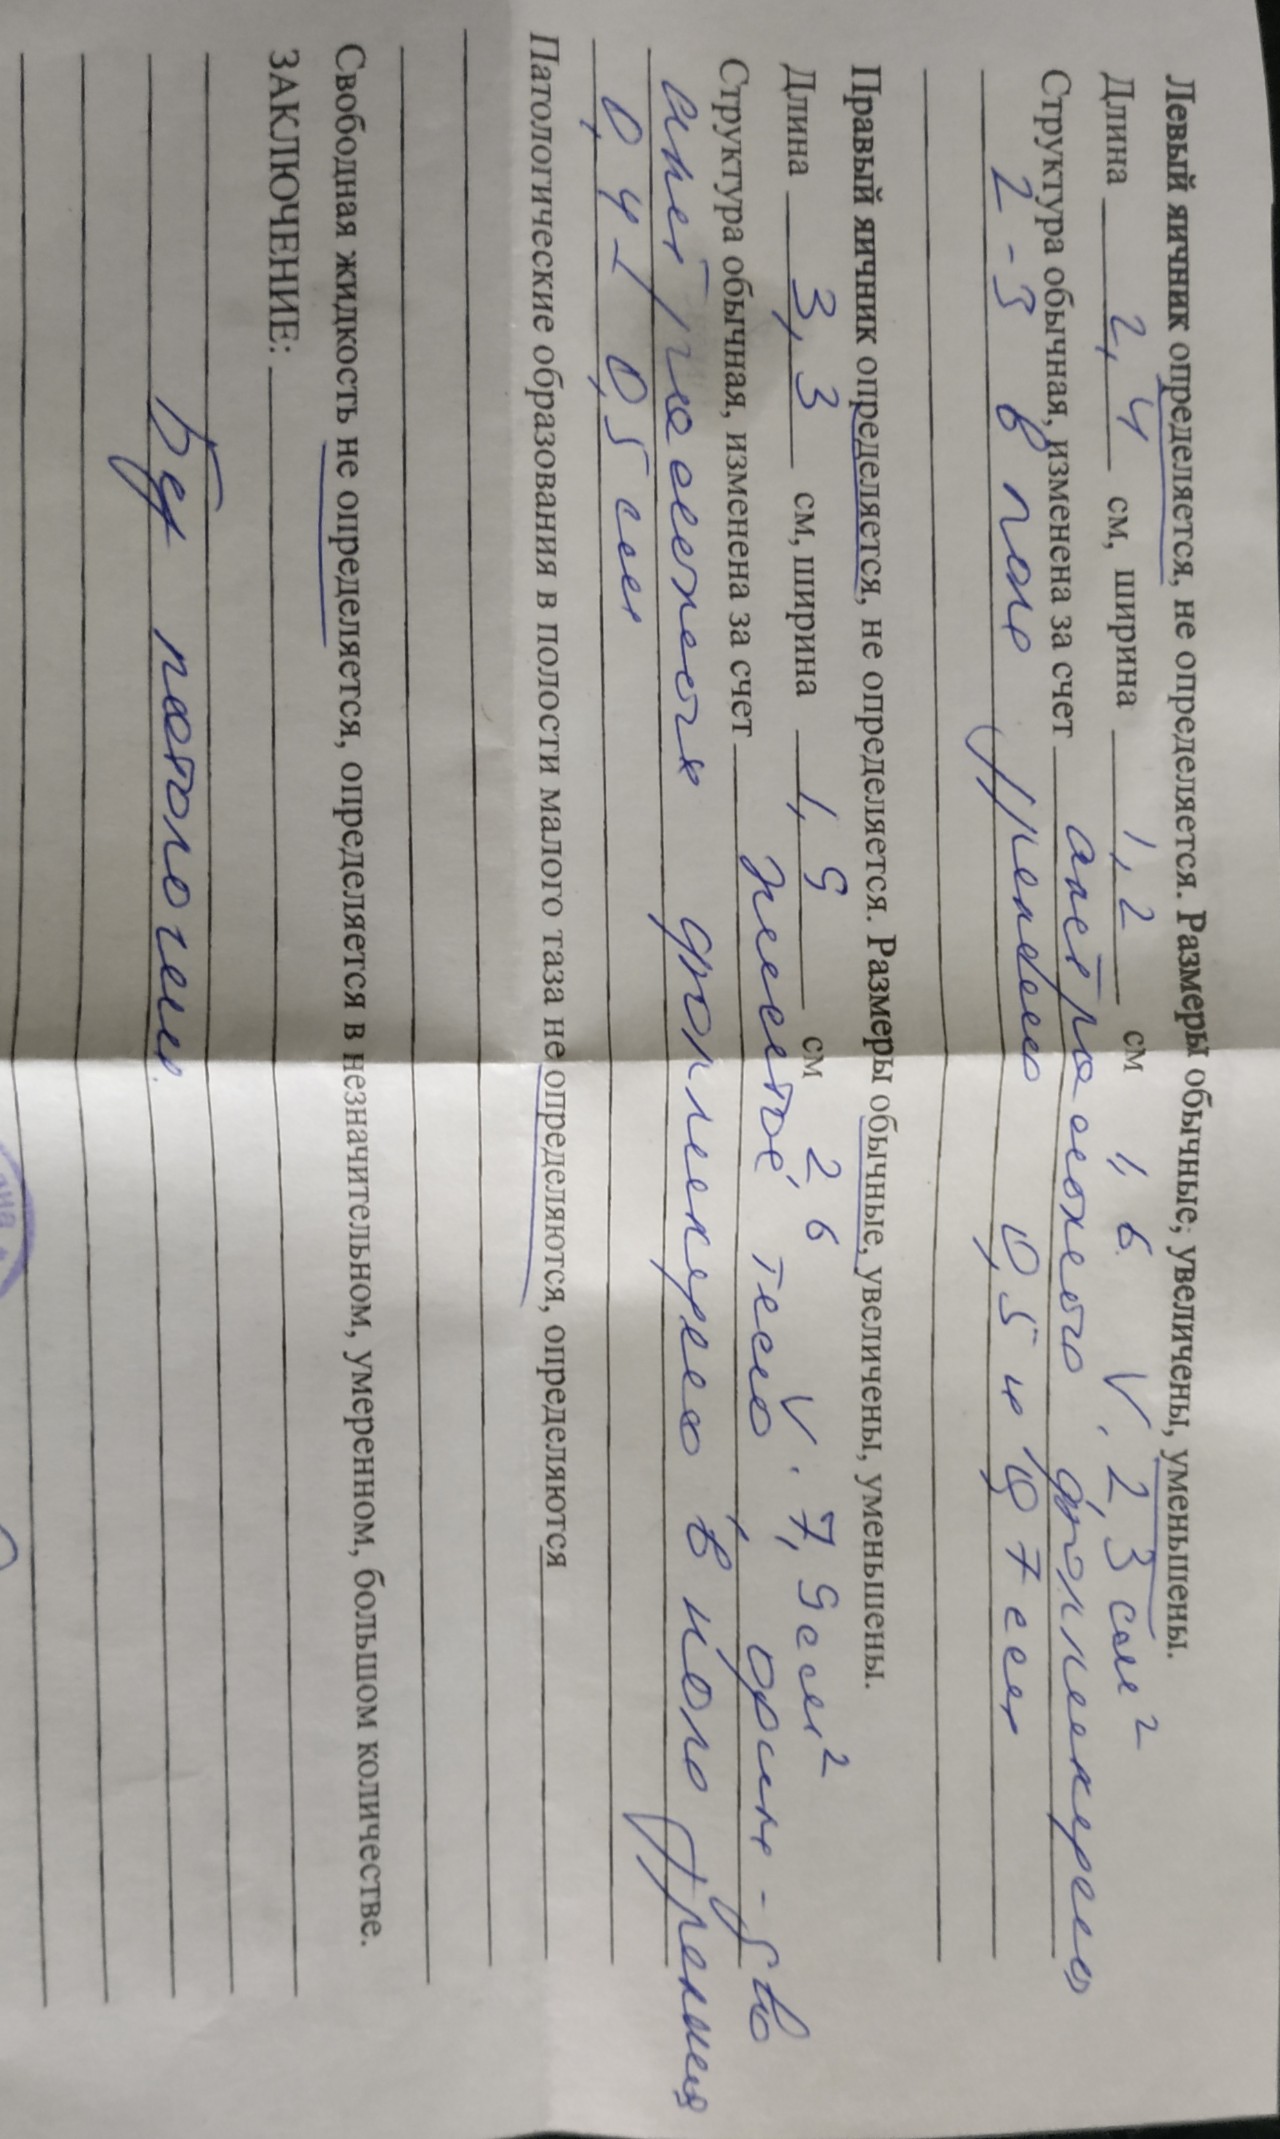 Левый яичник определяется, не определяется. Размеры обычные, увеличены, уменьшены.
Длина 2,4 см, ширина 1,2 см 1,6 V. 2,3 см²
Структура обычная, изменена за счет
2-3 в поле зрения 0,5 и 0,7 см
Правый яичник определяется, не определяется. Размеры обычные, увеличены, уменьшены.
Длина 3,3 см, ширина 1,9 см 2,6 V. 7,9 см²
Структура обычная, изменена за счет желтое тело,
фолликулы в поле зрения
0,4 - 0,5 см
Патологические образования в полости малого таза не определяются, определяются
Свободная жидкость не определяется, определяется в незначительном, умеренном, большом количестве.
ЗАКЛЮЧЕНИЕ:
Без патологии.